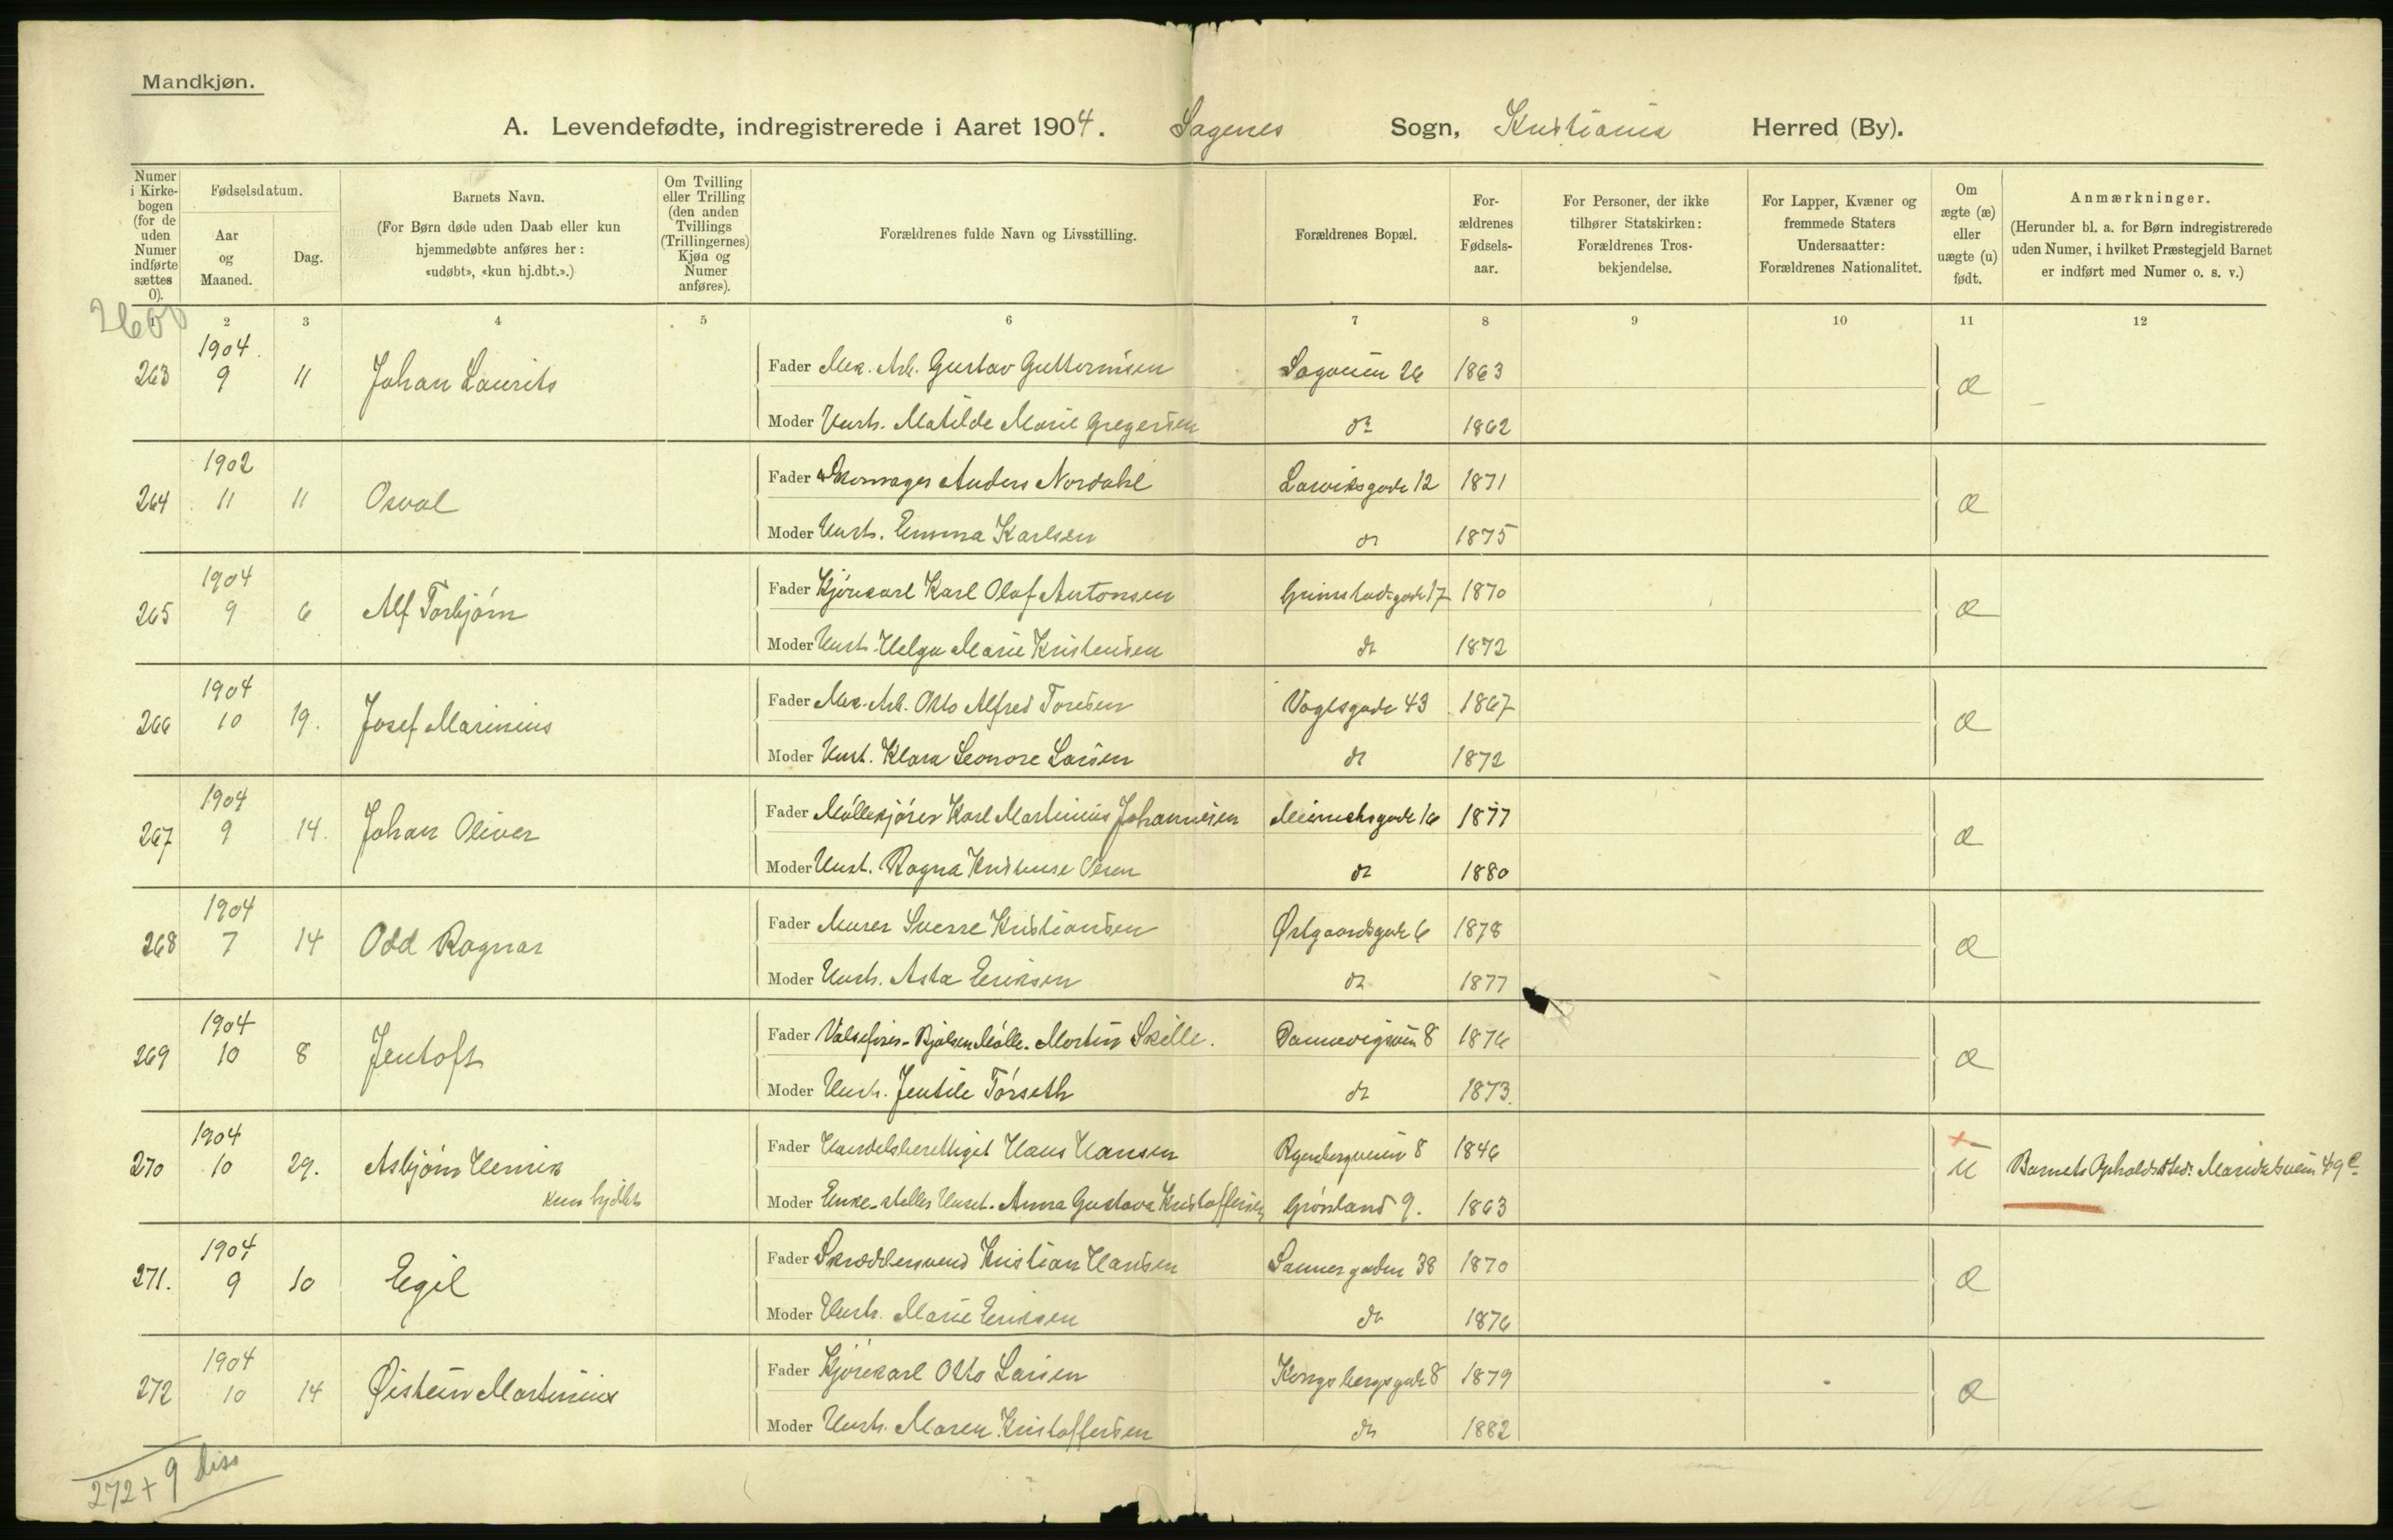 Mandkjøn.
A. Levendefødte, indregistrerede i Aaret 1904. Sagenes Sogn, Kristiania Herred (By).
Numer i Kirkebogen (for de uden Numer indførte sættes 0).
Fødselsdatum.
Aar og Maaned.
Dag.
Barnets Navn.
(For Børn døde uden Daab eller kun hjemmedøbte anføres her: «udøbt», «kun hj.dbt.».)
Om Tvilling eller Trilling (den anden Tvillings (Trillingernes) Kjøn og Numer anføres).
Forældrenes fulde Navn og Livsstilling.
Forældrenes Bopæl.
Forældrenes Fødselsaar.
For Personer, der ikke tilhører Statskirken: Forældrenes Trosbekjendelse.
For Lapper, Kvæner og fremmede Staters Undersaatter: Forældrenes Nationalitet.
Om ægte (æ) eller uægte (u) født.
Anmærkninger.
(Herunder bl. a. for Børn indregistrerede uden Numer, i hvilket Præstegjeld Barnet er indført med Numer o. s. v.)
1 2 3 4 5 6 7 8 9 10 11 12
260
263 1904 9 11 Johan Laurits Fader Mek. Arb. Gustav Guttormsen Sagveien 26 1863 æ
Moder Hustr. Matilde Marie Gregersen do 1862
264 1902 11 11 Osval Fader Skomager Anders Nordahl Larviksgade 12 1871 æ
Moder Hustr. Emma Karlsen do 1875
265 1904 9 6 Alf Torbjørn Fader Kjørekarl Karl Olaf Antonsen Grimstadsgade 17 1870 æ
Moder Hustr. Helga Marie Kristensen do 1872
266 1904 10 19. Josef Marinius Fader Mek. Arb. Otto Alfred Toresen Vogtsgade 43 1867 æ
Moder Hust. Klara Leonore Larsen do 1872
267 1904 9 14. Johan Oliver Fader Møllekjører Karl Martinius Johannesen 16 1877 æ
Moder Hust. Ragna Kristense Olsen do 1880
268 1904 7 14 Odd Ragnar Fader Murer Sverre Kristiansen Østgaardsgade 6 1878 æ
Moder Hustr. Asta Eriksen do 1877
269 1904 10 8 Jentoft Fader Bjølsen Mølle. Martin Skille. Dannevigsvein 8 1876 æ
Moder Hustr. Jentile Tørseth do 1873.
270 1904 10 29. Asbjørn Henrik Fader Handelsberettiget Hans Hansen Ryenbergveien 8 1846 + u Barnets Opholdssted: Maridalsveien 49 c
kun hjdbt Moder Enke Anna Gustava Kristoffersen Grønland 9. 1863
271. 1904 9 10 Egil Fader Skræddersvend Kristian Hansen Sannergaden 38 1870 æ
Moder Hustr. Marie Eriksen do 1876
272 1904 10 14 Øistein Martinius Fader Kjørekarl Otto Larsen Kongsbergsgade 8 1879 æ
Moder Hustr. Maren Kristoffersen do 1882
272 + 9 diss